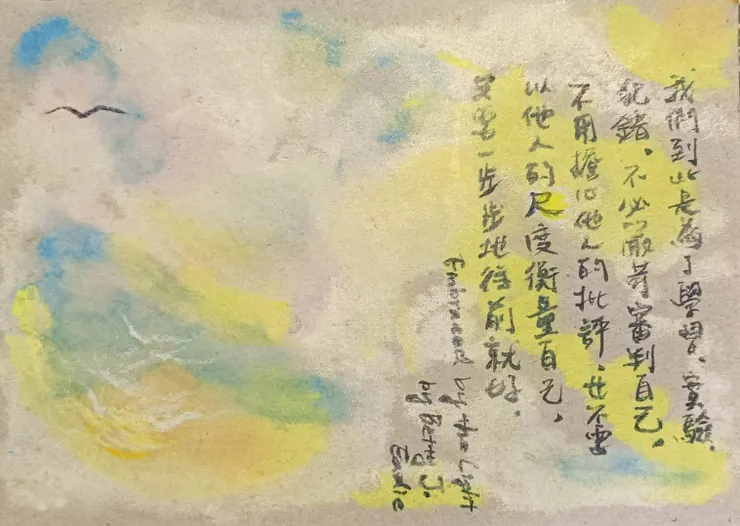 我們到此是為了學習、實驗、
犯錯。不必以嚴苛審判自己。
不用擔心他人的批評，也不要
以他人的尺度衡量自己，
只要一步步地往前就好。
Embraced by the Light
by Betty J.
Eadie